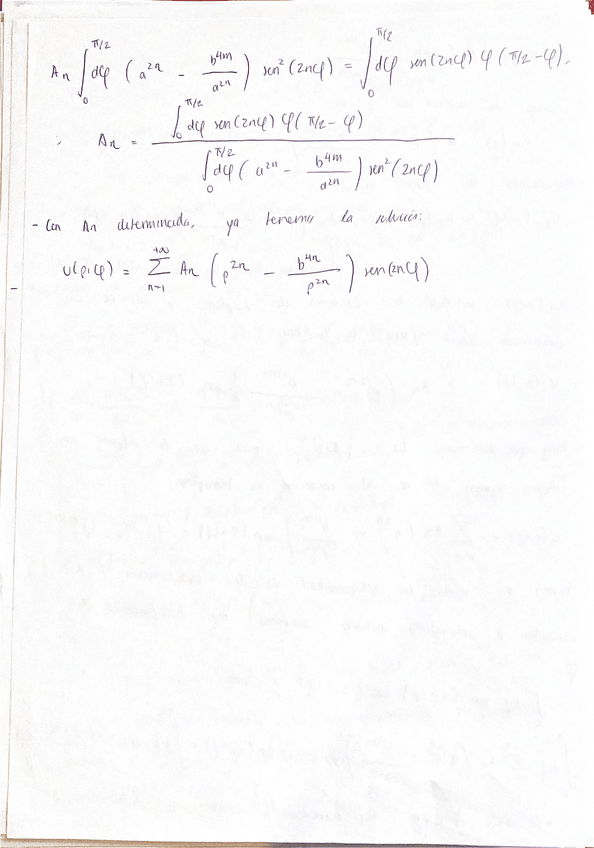 An ∫₀^{π/2} dφ (a^{2n} - b^{4m}/a^{2n}) sen²(2nφ) = ∫₀^{π/2} dφ sen(2nφ) φ(π/2-φ).
∴ An = ∫₀^{π/2} dφ sen(2nφ) φ(π/2 - φ) / ∫₀^{π/2} dφ (a^{2n} - b^{4m}/a^{2n}) sen²(2nφ)
- Con An determinada, ya tenemos la solución:
U(ρ,φ) = Σ_{n=1}^{+∞} An (ρ^{2n} - b^{4n}/ρ^{2n}) sen(2nφ)